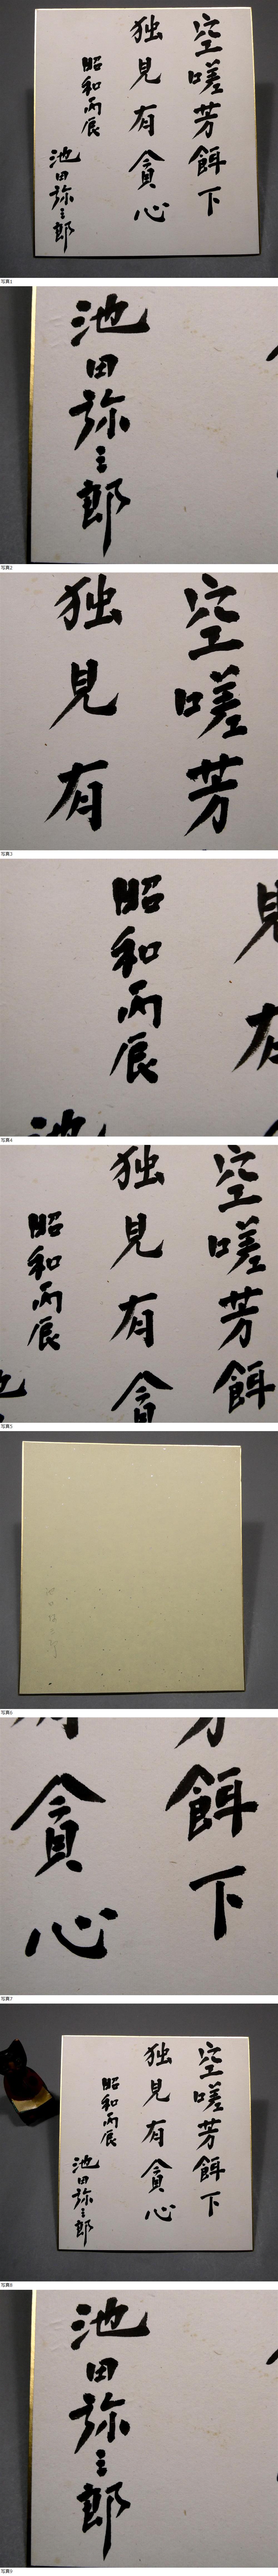 空嗟芳餌下
独見有貪心
昭和丙辰
池田弥三郎
写真1
池田弥三郎
写真2
空嗟芳
独見有
写真3
見有
昭和丙辰
池
写真4
空嗟芳餌
独見有貪
昭和丙辰
写真5
写真6
餌下
貪心
写真7
空嗟芳餌下
独見有貪心
昭和丙辰
池田弥三郎
写真8
池田弥三郎
写真9